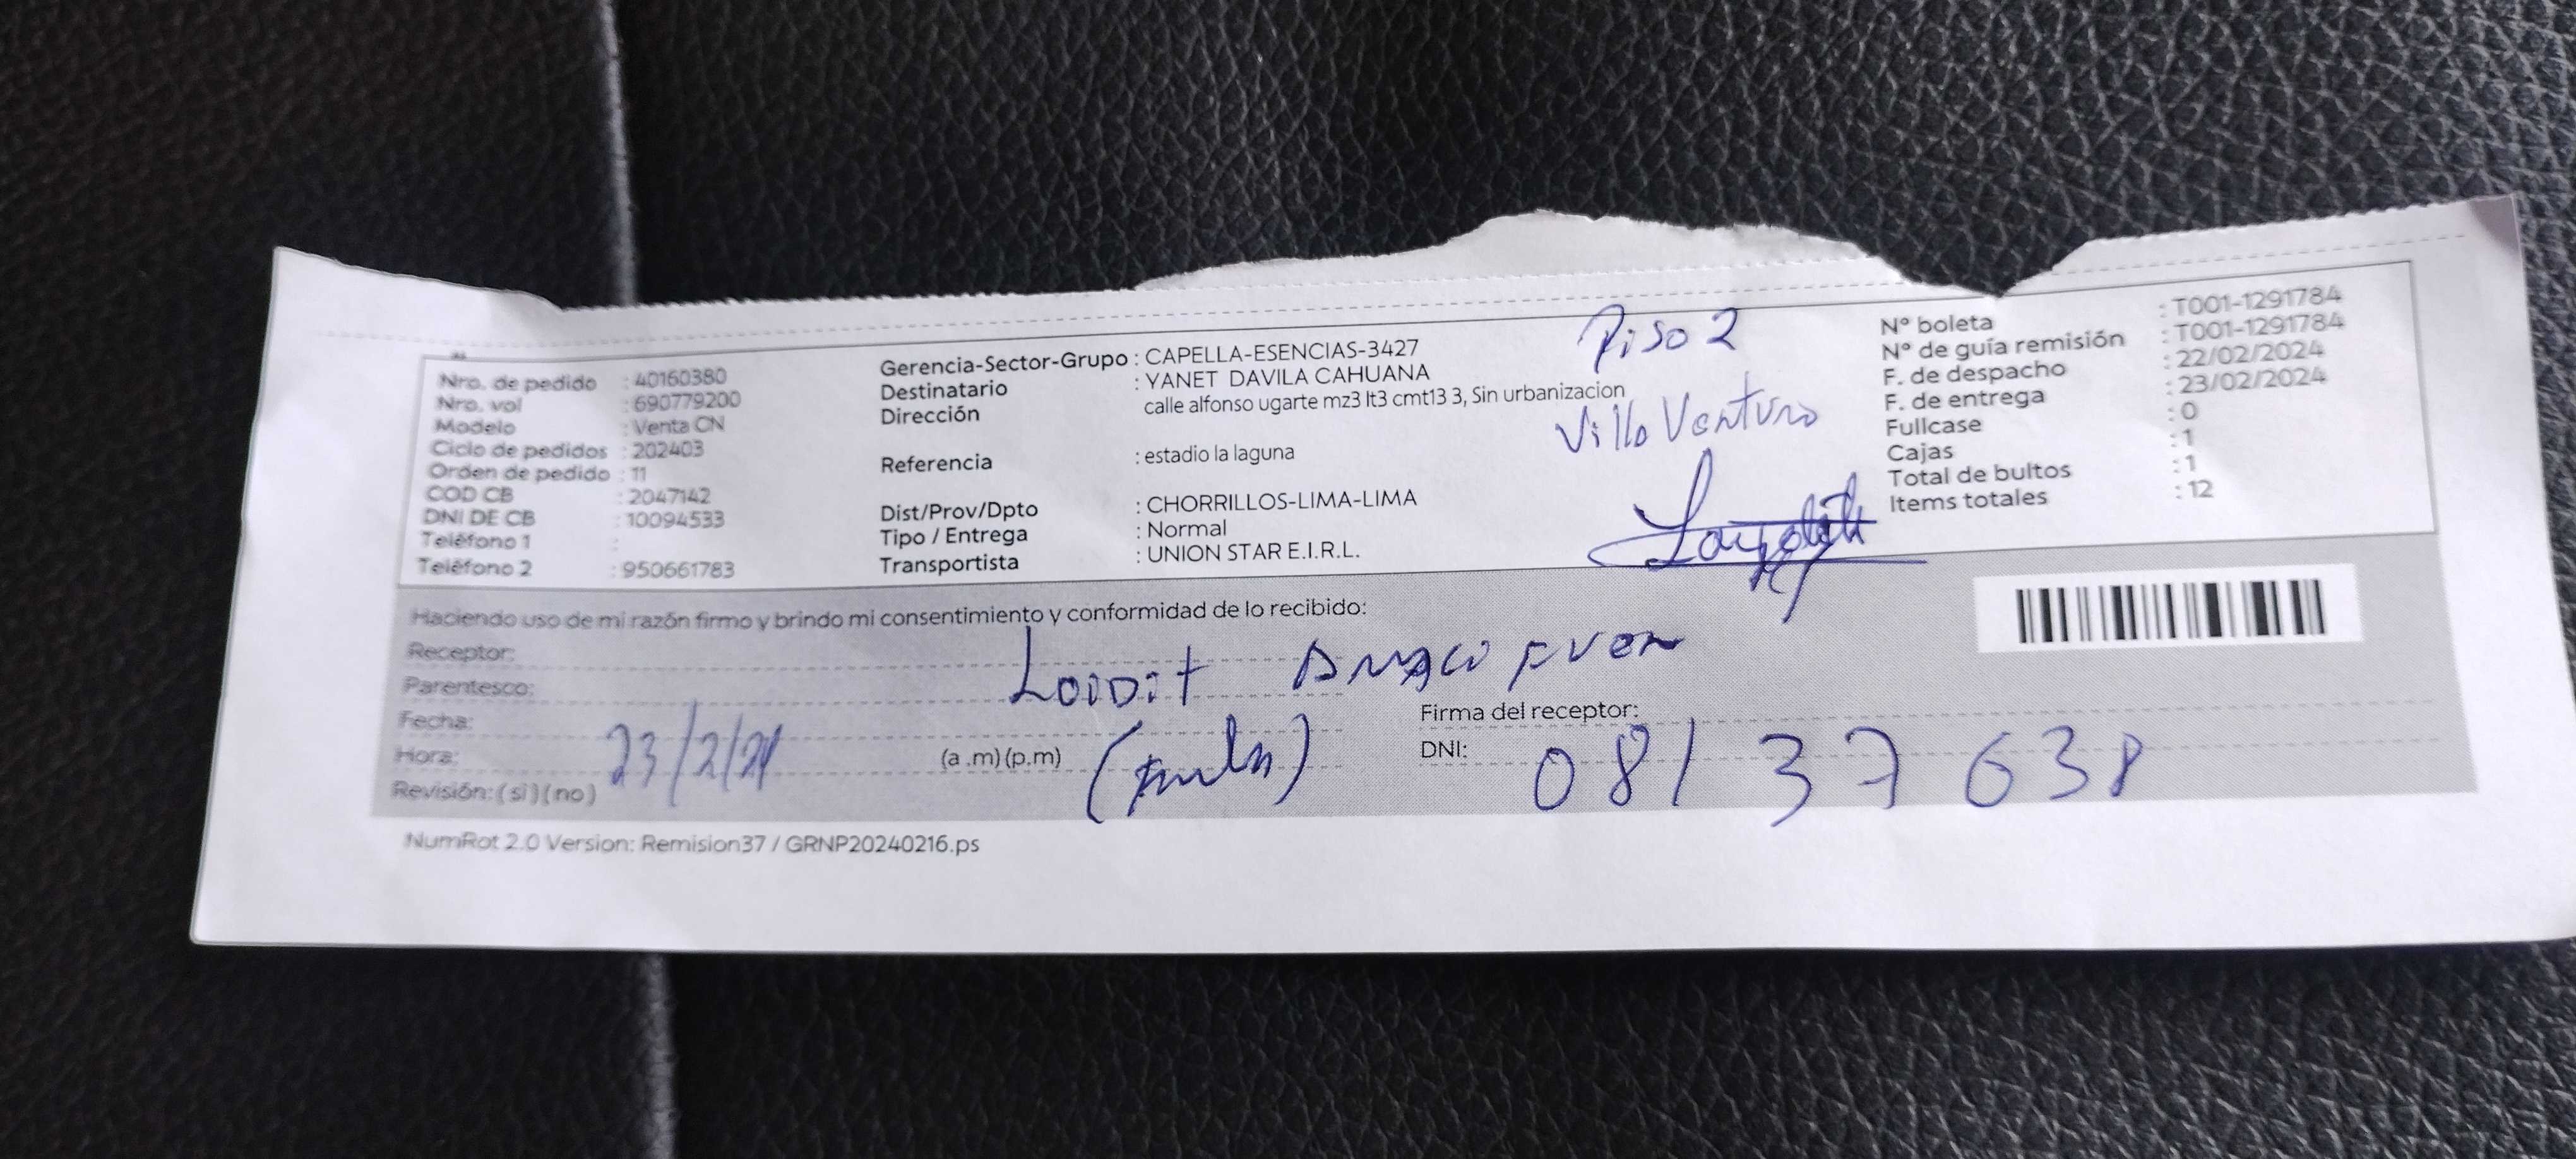 Nro. de pedido : 40160380
Nro. vol : 690779200
Modelo : Venta CN
Ciclo de pedidos : 202403
Orden de pedido : 11
COD CB : 2047142
DNI DE CB : 10094533
Teléfono 1 :
Teléfono 2 : 950661783
Gerencia-Sector-Grupo : CAPELLA-ESENCIAS-3427
Destinatario : YANET DAVILA CAHUANA
Dirección calle alfonso ugarte mz3 lt3 cmt13 3, Sin urbanizacion
Referencia : estadio la laguna
Dist/Prov/Dpto : CHORRILLOS-LIMA-LIMA
Tipo / Entrega : Normal
Transportista : UNION STAR E.I.R.L.
Piso 2
Villa Venturo
N° boleta : T001-1291784
N° de guía remisión : T001-1291784
F. de despacho : 22/02/2024
F. de entrega : 23/02/2024
Fullcase : 0
Cajas : 1
Total de bultos : 1
Items totales : 12
Haciendo uso de mi razón firmo y brindo mi consentimiento y conformidad de lo recibido:
Receptor:
Parentesco:
Fecha: 23/2/24
Hora: (a .m) (p.m)
Revisión: ( si ) ( no )
Firma del receptor:
DNI: 08137638
NumRot 2.0 Version: Remision37 / GRNP20240216.ps